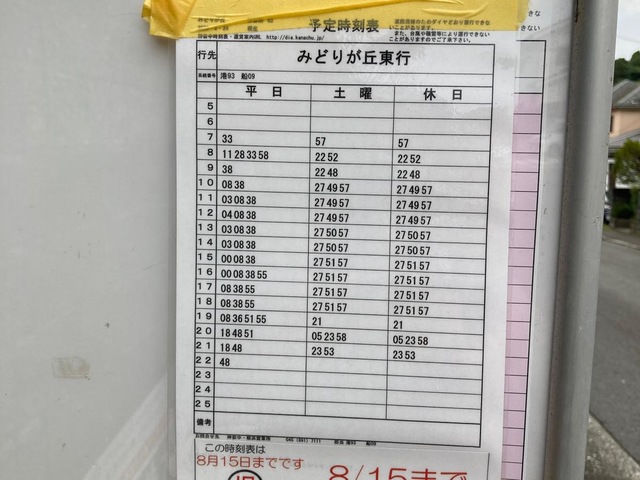 予定時刻表
http://dia.kanachu.jp/
行先 みどりが丘東行
系統番号 港93 船09
平日 土曜 休日
5
6
7 33 57 57
8 11 28 33 58 22 52 22 52
9 38 22 48 22 48
10 08 38 27 49 57 27 49 57
11 03 08 38 27 49 57 27 49 57
12 04 08 38 27 49 57 27 49 57
13 03 08 38 27 50 57 27 50 57
14 03 08 38 27 50 57 27 50 57
15 00 08 38 27 51 57 27 51 57
16 00 08 38 55 27 51 57 27 51 57
17 08 38 55 27 51 57 27 51 57
18 08 38 55 27 51 57 27 51 57
19 08 36 51 55 21 21
20 18 48 51 05 23 58 05 23 58
21 18 48 23 53 23 53
22 48
23
24
25
備考
この時刻表は
8月15日までです
8/15まで